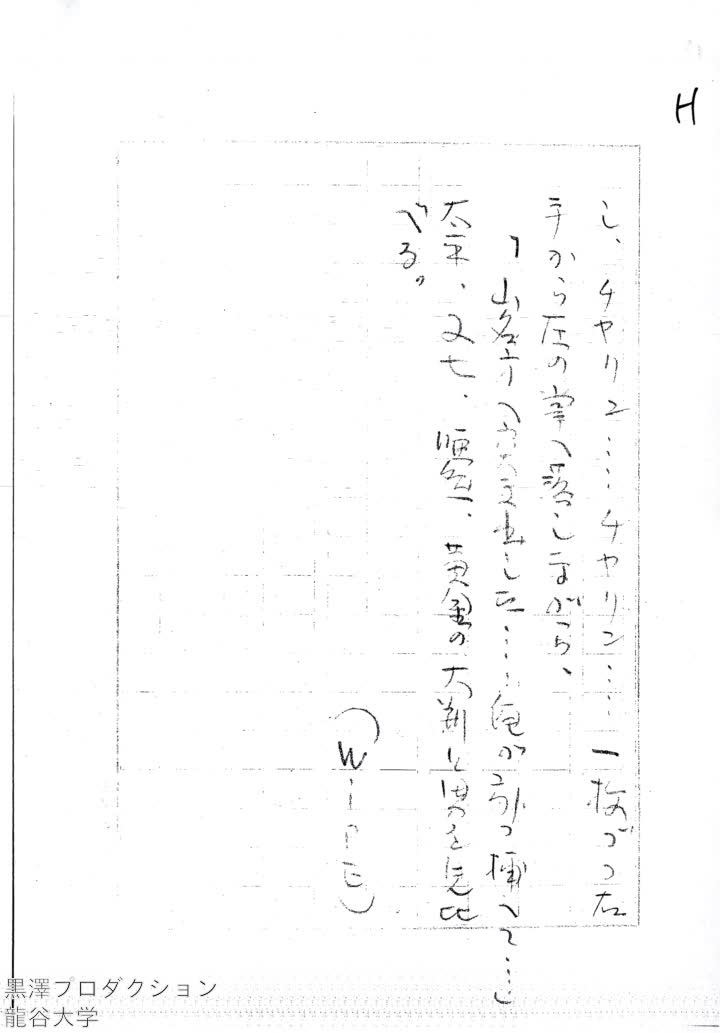 H
し、チヤリン‥‥チヤリン‥‥一枚づつ右
手から左の掌へ落しながら、
「山名方へ出した‥‥俺が引つ捕へて‥‥」
太平、又七、黄金の大判と男を見比
べる。
(WiPE)
黒澤プロダクション
龍谷大学